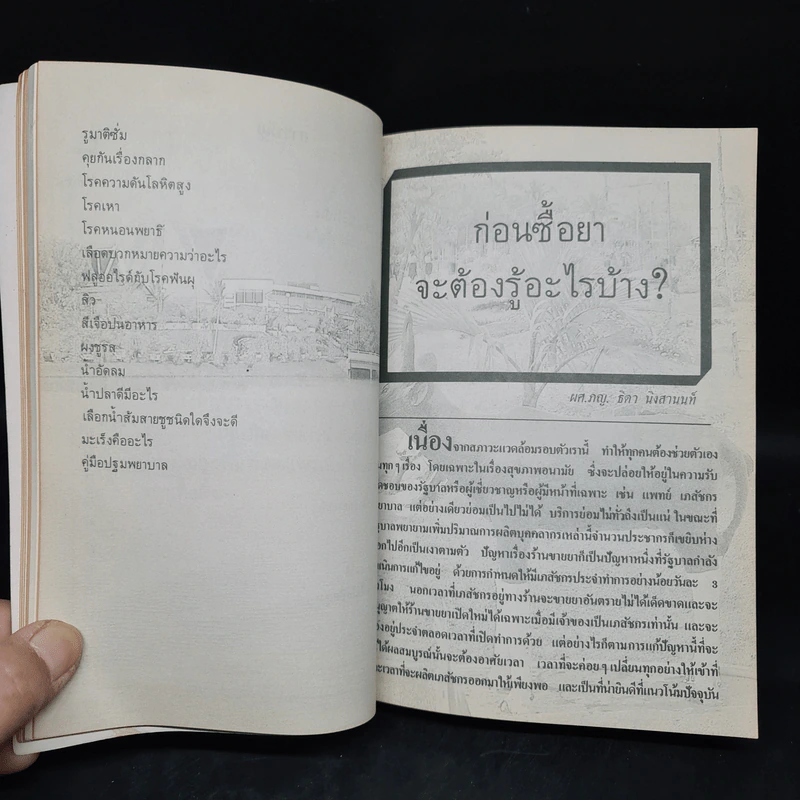 รูมาติซั่ม
คุยกันเรื่องกลาก
โรคความดันโลหิตสูง
โรคเหา
โรคหนอนพยาธิ
เลือดบวกหมายความว่าอะไร
ฟลูออไรด์กับโรคฟันผุ
สิว
สีเจือปนอาหาร
ผงชูรส
น้ำอัดลม
น้ำปลาดีมีอะไร
เลือกน้ำส้มสายชูชนิดใดจึงจะดี
มะเร็งคืออะไร
คู่มือปฐมพยาบาล
ก่อนซื้อยา
จะต้องรู้อะไรบ้าง?
ผศ.ภญ. ธิดา นิงสานนท์
เนื่องจากสภาวะแวดล้อมรอบตัวเรานี้ ทำให้ทุกคนต้องช่วยตัวเอง
นทุกๆเรื่อง โดยเฉพาะในเรื่องสุขภาพอนามัย ซึ่งจะปล่อยให้อยู่ในความรับ
ดชอบของรัฐบาลหรือผู้เชี่ยวชาญหรือผู้มีหน้าที่เฉพาะ เช่น แพทย์ เภสัชกร
ยาบาล แต่อย่างเดียวย่อมเป็นไปไม่ได้ บริการย่อมไม่ทั่วถึงเป็นแน่ ในขณะที่
ฐบาลพยายามเพิ่มปริมาณการผลิตบุคคลากรเหล่านี้จำนวนประชากรก็เขยิบห่าง
อกไปอีกเป็นเงาตามตัว ปัญหาเรื่องร้านขายยาก็เป็นปัญหาหนึ่งที่รัฐบาลกำลัง
เนินการแก้ไขอยู่ ด้วยการกำหนดให้มีเภสัชกรประจำทำการอย่างน้อยวันละ 3
โมง นอกเวลาที่เภสัชกรอยู่ทางร้านจะขายยาอันตรายไม่ได้เด็ดขาดและจะ
ญาตให้ร้านขายยาเปิดใหม่ได้เฉพาะเมื่อมีเจ้าของเป็นเภสัชกรเท่านั้น และจะ
งอยู่ประจำตลอดเวลาที่เปิดทำการด้วย แต่อย่างไรก็ตามการแก้ปัญหานี้ที่จะ
ได้ผลสมบูรณ์นั้นจะต้องอาศัยเวลา เวลาที่จะค่อยๆเปลี่ยนทุกอย่างให้เข้าที่
ะเวลาที่จะผลิตเภสัชกรออกมาให้เพียงพอ และเป็นที่น่ายินดีที่แนวโน้มปัจจุบัน